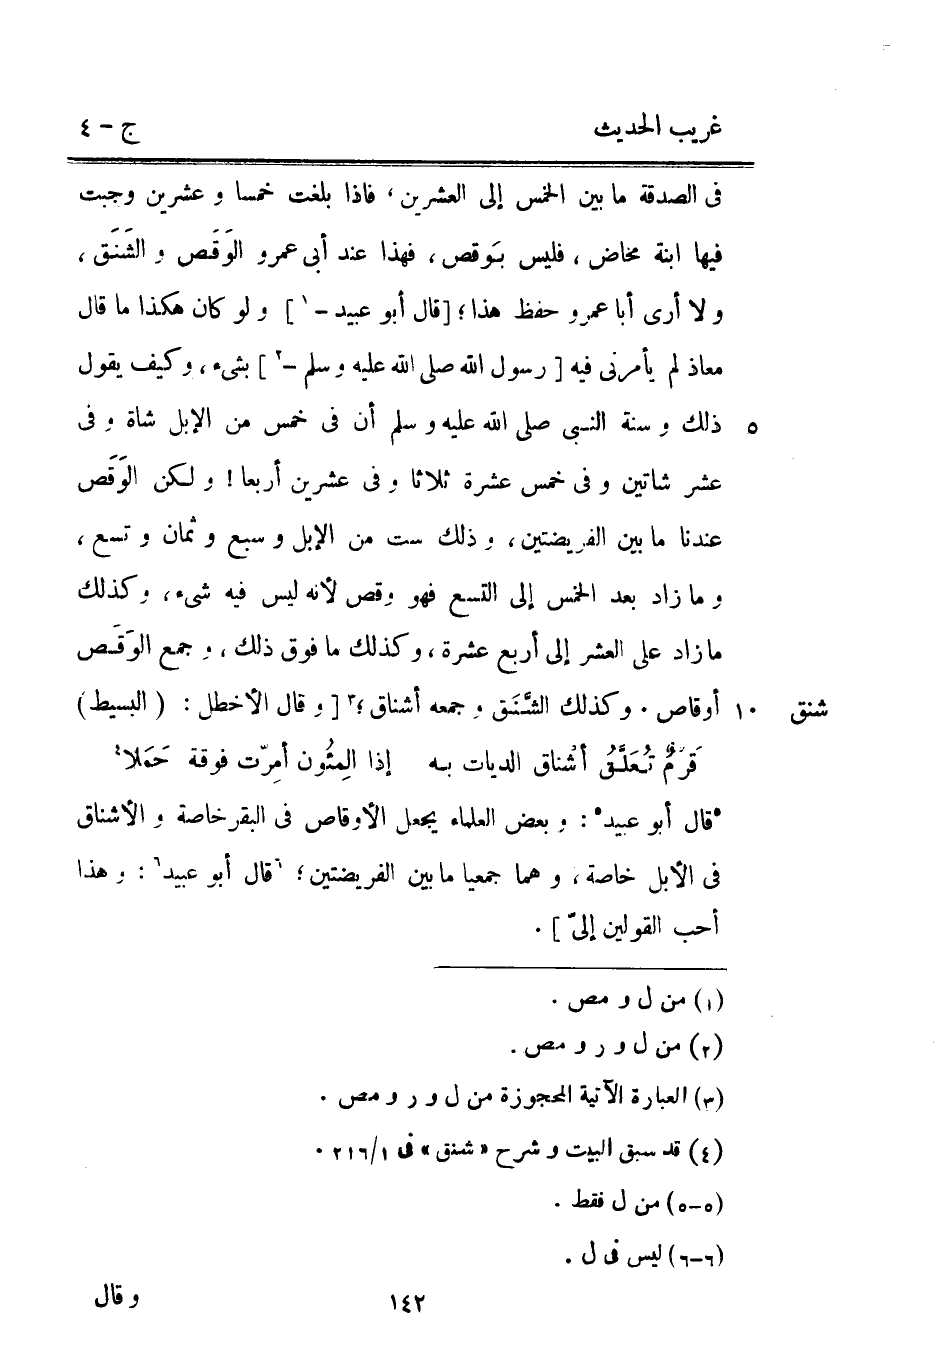 غريب الحديث ج - ٤
فى الصدقة ما بين الخمس إلى العشرين، فاذا بلغت خمسا و عشرين وجبت
فيها ابنة مخاض، فليس بوقص، فهذا عند أبى عمرو الوَقَص و الشَنَق،
و لا أرى أبا عمرو حفظ هذا؛ [قال أبو عبيد - ١] و لو كان هكذا ما قال
معاذ لم يأمرنى فيه [رسول الله صلى الله عليه و سلم -٢] بشىء، و كيف يقول
٥ ذلك و سنة النبى صلى الله عليه و سلم أن فى خمس من الإبل شاة و فى
عشر شاتين و فى خمس عشرة ثلاثا و فى عشرين أربعا! و لكن الوَقَص
عندنا ما بين الفريضتين، و ذلك ست من الإبل و سبع و ثمان و تسع،
و ما زاد بعد الخمس إلى التسع فهو وقص لأنه ليس فيه شىء، و كذلك
ما زاد على العشر إلى أربع عشرة، و كذلك ما فوق ذلك، و جمع الوَقَص
شنق ١٠ أوقاص. و كذلك الشَّنَق و جمعه أشناق؛٣ [و قال الأخطل: (البسيط)
قَرْمٌ تُعَلَّقُ أشناق الديات بـه إذا المِئُون أمِرّت فوقة حَمَلا٤
٥قال أبو عبيد٥: و بعض العلماء يجعل الأوقاص فى البقر خاصة و الأشناق
فى الأبل خاصة، و هما جمعيا ما بين الفريضتين؛ ٦قال أبو عبيد٦: و هذا
أحب القولين إلىّ].
(١) من ل و مص.
(٢) من ل و ر و مص.
(٣) العبارة الآتية المحجوزة من ل و ر و مص.
(٤) قد سبق البيت و شرح «شنق» فى ٢١٦/١.
(٥-٥) من ل فقط.
(٦-٦) ليس فى ل.
١٤٢ و قال